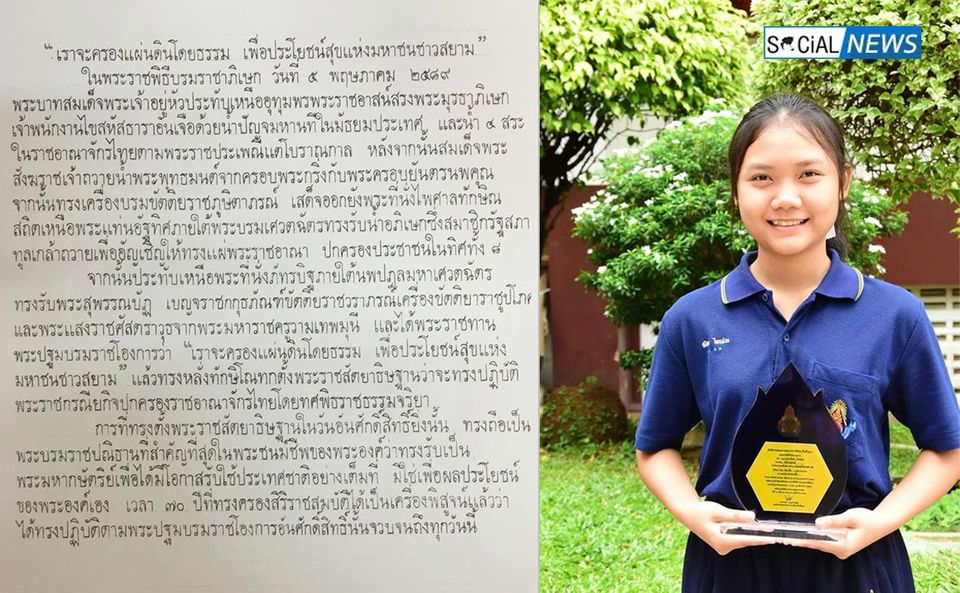 “เราจะครองแผ่นดินโดยธรรม เพื่อประโยชน์สุขแห่งมหาชนชาวสยาม”
ในพระราชพิธีบรมราชาภิเษก วันที่ ๕ พฤษภาคม ๒๔๙๓
พระบาทสมเด็จพระเจ้าอยู่หัวประทับเหนืออุทุมพรพระราชอาสน์สรงพระมุรธาภิเษก
เจ้าพนักงานไขสหัสธาราอันเจือด้วยน้ำปัญจมหานทีในมัธยมประเทศ และน้ำ ๔ สระ
ในราชอาณาจักรไทยตามพระราชประเพณีแต่โบราณกาล หลังจากนั้นสมเด็จพระ
สังฆราชเจ้าถวายน้ำพระพุทธมนต์จากครอบพระกริ่งกับพระครอบยันตรนพคุณ
จากนั้นทรงเครื่องบรมขัตติยราชภูษิตาภรณ์ เสด็จออกยังพระที่นั่งไพศาลทักษิณ
สถิตเหนือพระแท่นอัฐทิศภายใต้พระบรมเศวตฉัตรทรงรับน้ำอภิเษกซึ่งสมาชิกรัฐสภา
ทูลเกล้าถวายเพื่ออัญเชิญให้ทรงแผ่พระราชอาณา ปกครองประชาชนในทิศทั้ง ๘
จากนั้นประทับเหนือพระที่นั่งภัทรบิฐภายใต้นพปฎลมหาเศวตฉัตร
ทรงรับพระสุพรรณบัฏ เบญจราชกกุธภัณฑ์ขัตติยราชวราภรณ์เครื่องขัตติยาราชูปโภค
และพระแสงราชศัสตราวุธจากพระมหาราชครูวามเทพมุนี และได้พระราชทาน
พระปฐมบรมราชโองการว่า “เราจะครองแผ่นดินโดยธรรม เพื่อประโยชน์สุขแห่ง
มหาชนชาวสยาม” แล้วทรงหลั่งทักษิโณทกตั้งพระราชสัตยาธิษฐานว่าจะทรงปฏิบัติ
พระราชกรณียกิจปกครองราชอาณาจักรไทยโดยทศพิธราชธรรมจริยา
การที่ทรงตั้งพระราชสัตยาธิษฐานในวันอันศักดิ์สิทธิ์ยิ่งนั้น ทรงถือเป็น
พระบรมราชปณิธานที่สำคัญที่สุดในพระชนม์ชีพของพระองค์ว่าทรงรับเป็น
พระมหากษัตริย์เพื่อได้มีโอกาสรับใช้ประเทศชาติอย่างเต็มที่ มิใช่เพื่อผลประโยชน์
ของพระองค์เอง เวลา ๗๐ ปีที่ทรงครองสิริราชสมบัติได้เป็นเครื่องพิสูจน์แล้วว่า
ได้ทรงปฏิบัติตามพระปฐมบรมราชโองการอันศักดิ์สิทธิ์นั้นจวบจนถึงทุกวันนี้
SOCiAL NEWS